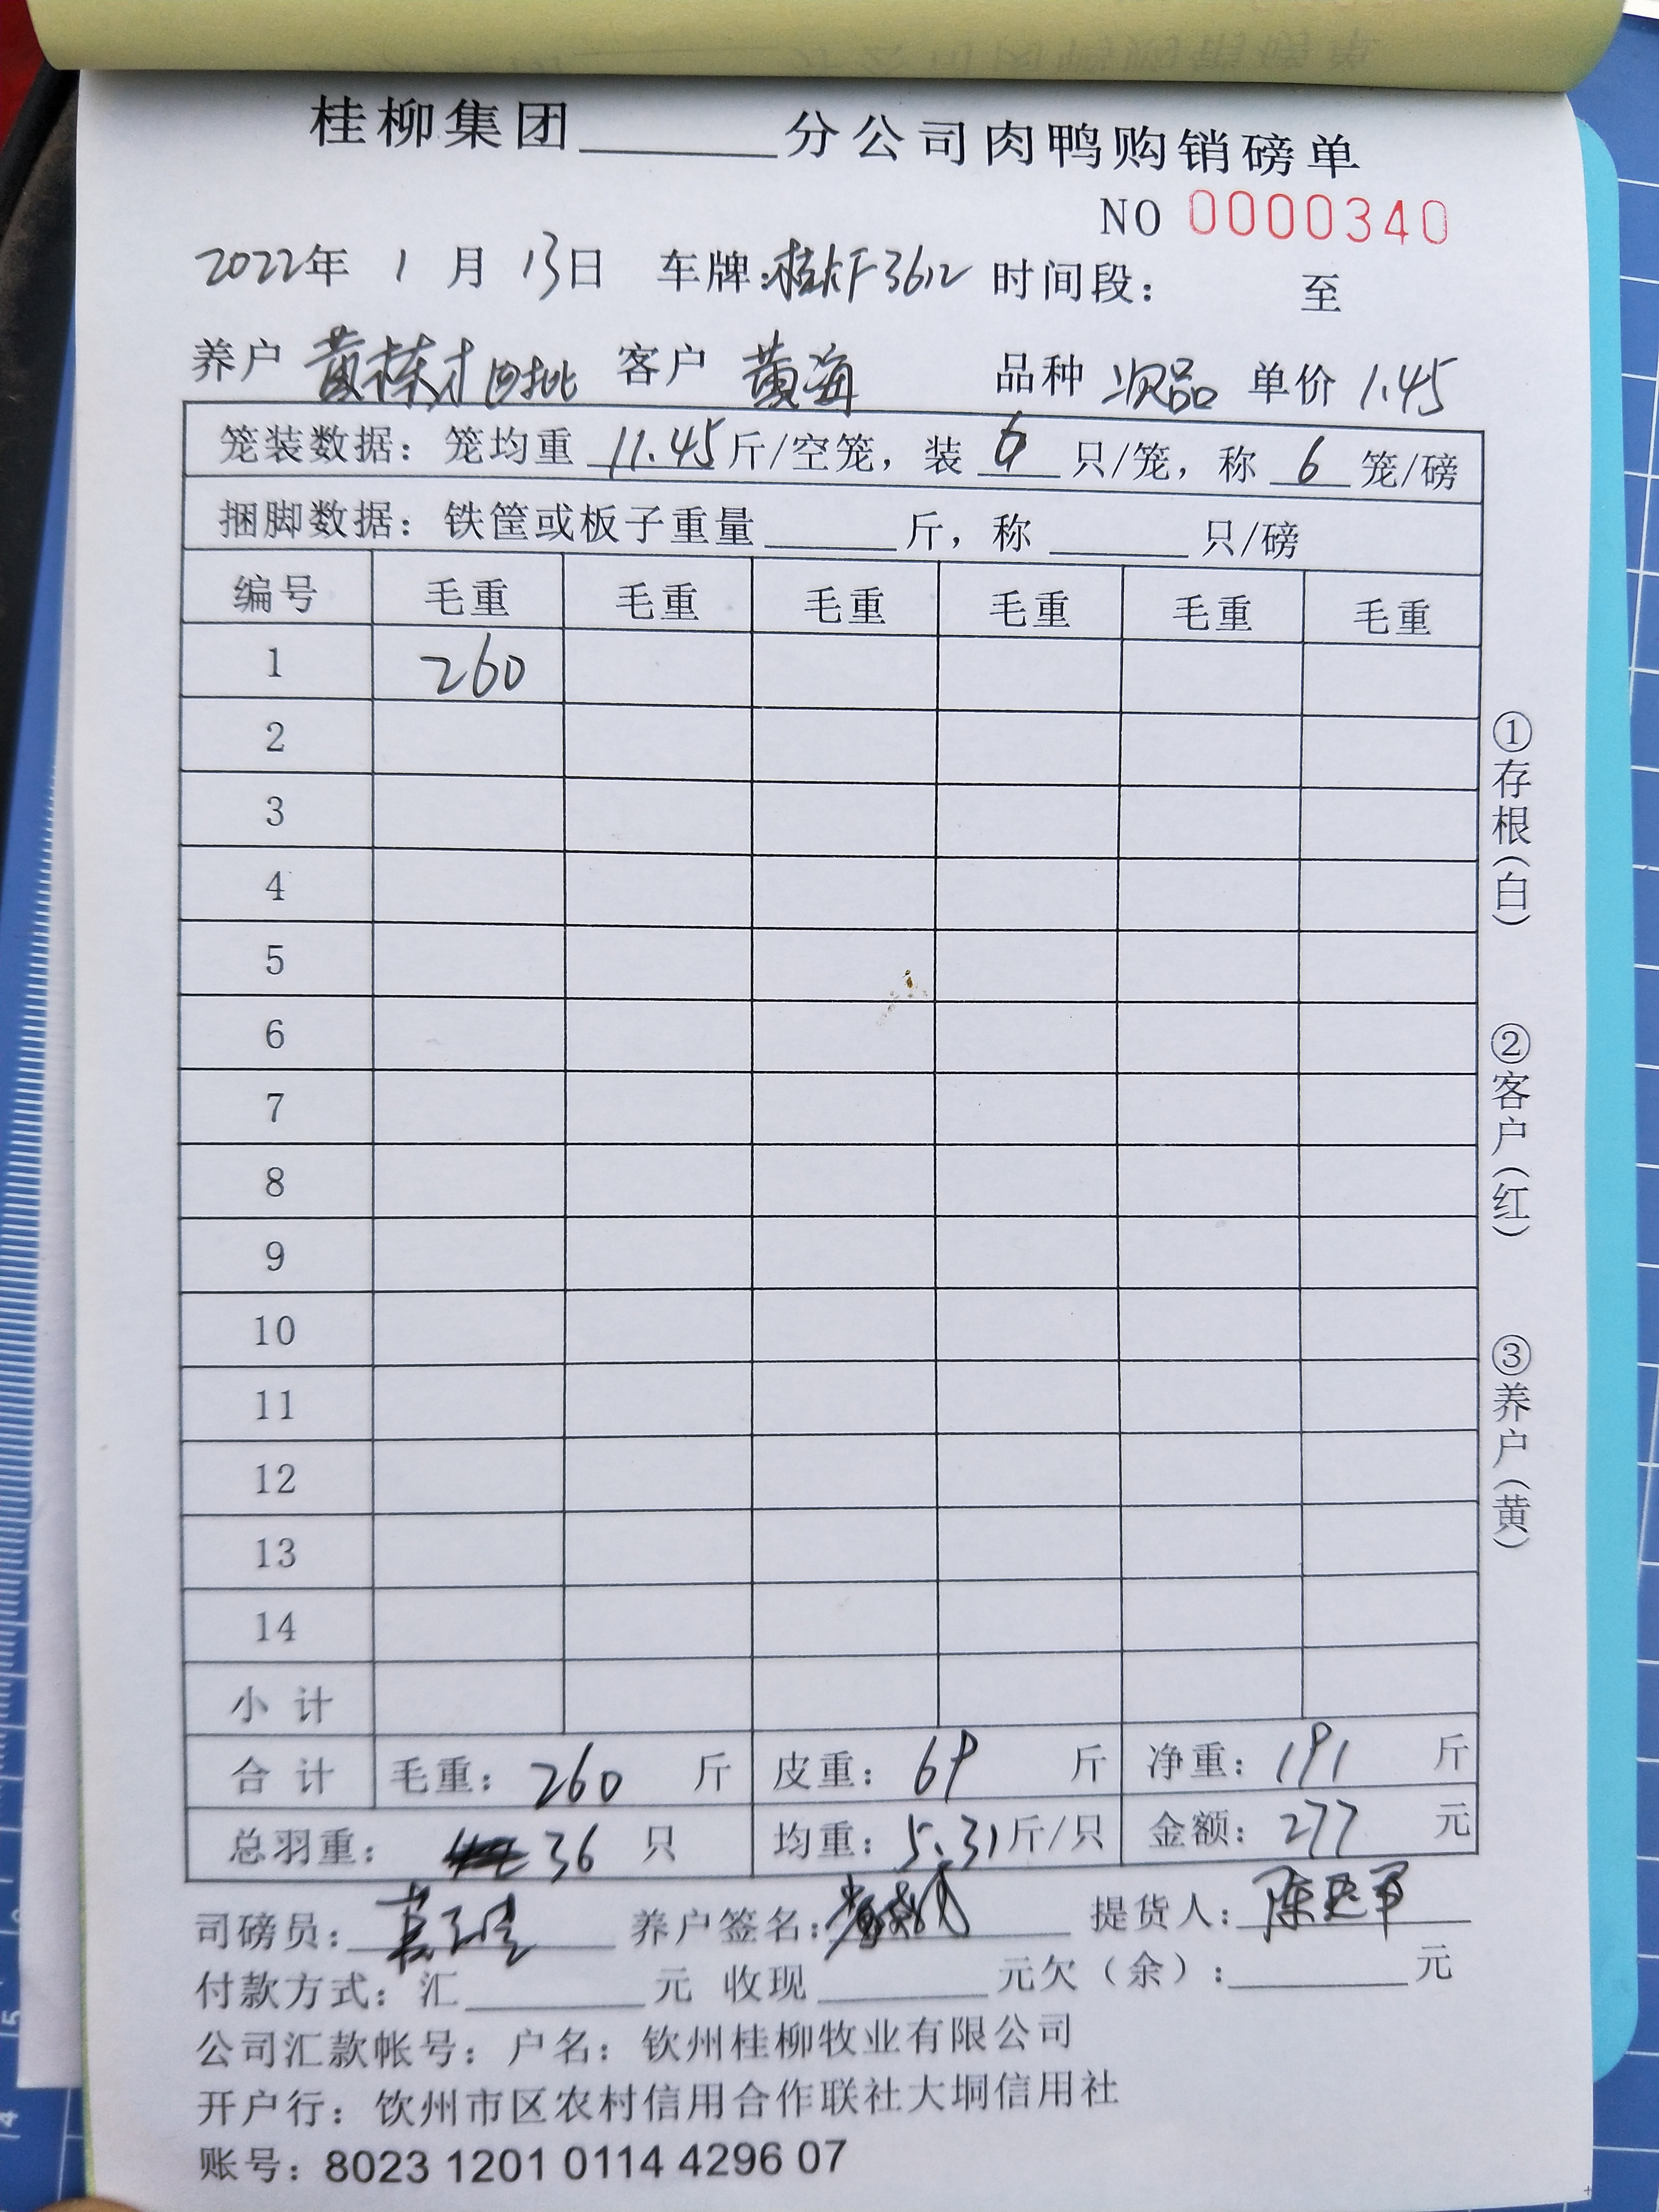 桂柳集团______分公司肉鸭购销磅单
NO 0000340
2022年 1 月 13日 车牌: 3612 时间段: 至
养户 黄栋才 客户 黄海 品种 次品 单价 1.45
笼装数据: 笼均重 11.45 斤/空笼, 装 6 只/笼, 称 6 笼/磅
捆脚数据: 铁筐或板子重量______斤, 称______只/磅
编号 毛重 毛重 毛重 毛重 毛重 毛重
1 260
2
3
4
5
6
7
8
9
10
11
12
13
14
小 计
合 计 毛重: 260 斤 皮重: 69 斤 净重: 191 斤
总羽重: 36 只 均重: 5.31 斤/只 金额: 277 元
司磅员: 养户签名: 提货人:
付款方式: 汇______元 收现______元欠（余）:______元
公司汇款帐号: 户名: 钦州桂柳牧业有限公司
开户行: 钦州市区农村信用合作联社大垌信用社
账号: 8023 1201 0114 4296 07
①存根(白) ②客户(红) ③养户(黄)